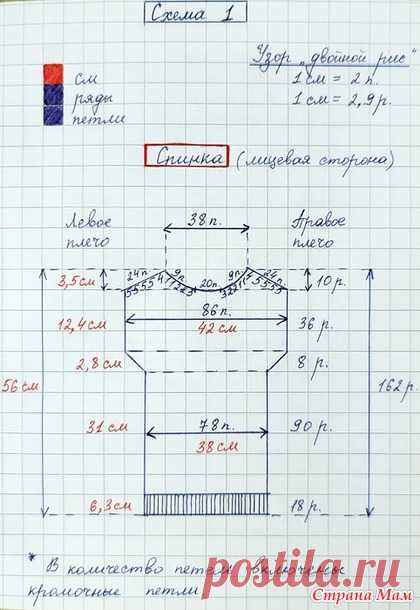 Схема 1
Узор „двойной рис"
1 см = 2 п.
1 см = 2,9 р.
см
ряды
петли
Спинка (лицевая сторона)
Левое плечо
38 п.
Правое плечо
3,5 см
24 п.
5 5 5 5 4
9 п.
1 1 2 2 3
20 п.
9 п.
3 2 2 1 1
24
4 5 5 5 5
10 р.
86 п.
12,4 см
42 см
36 р.
2,8 см
8 р.
56 см
162 р.
31 см
78 п.
38 см
90 р.
6,3 см
18 р.
* В количество петель включены
кромочные петли
postila.ru
Страна Мам